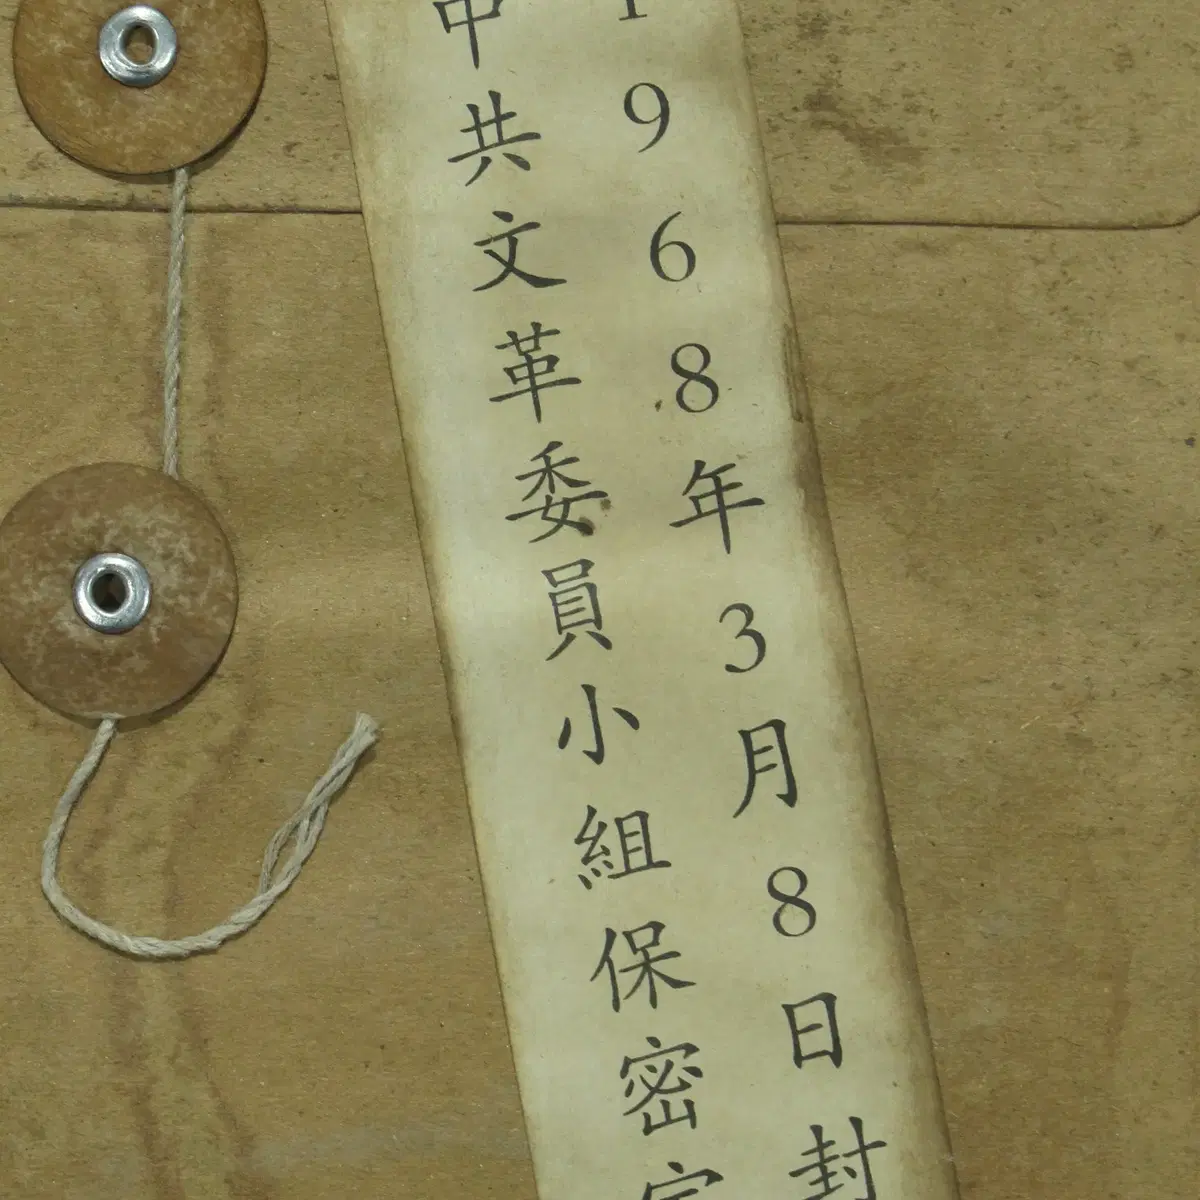 1968年3月8日封
中共文革委員小組保密